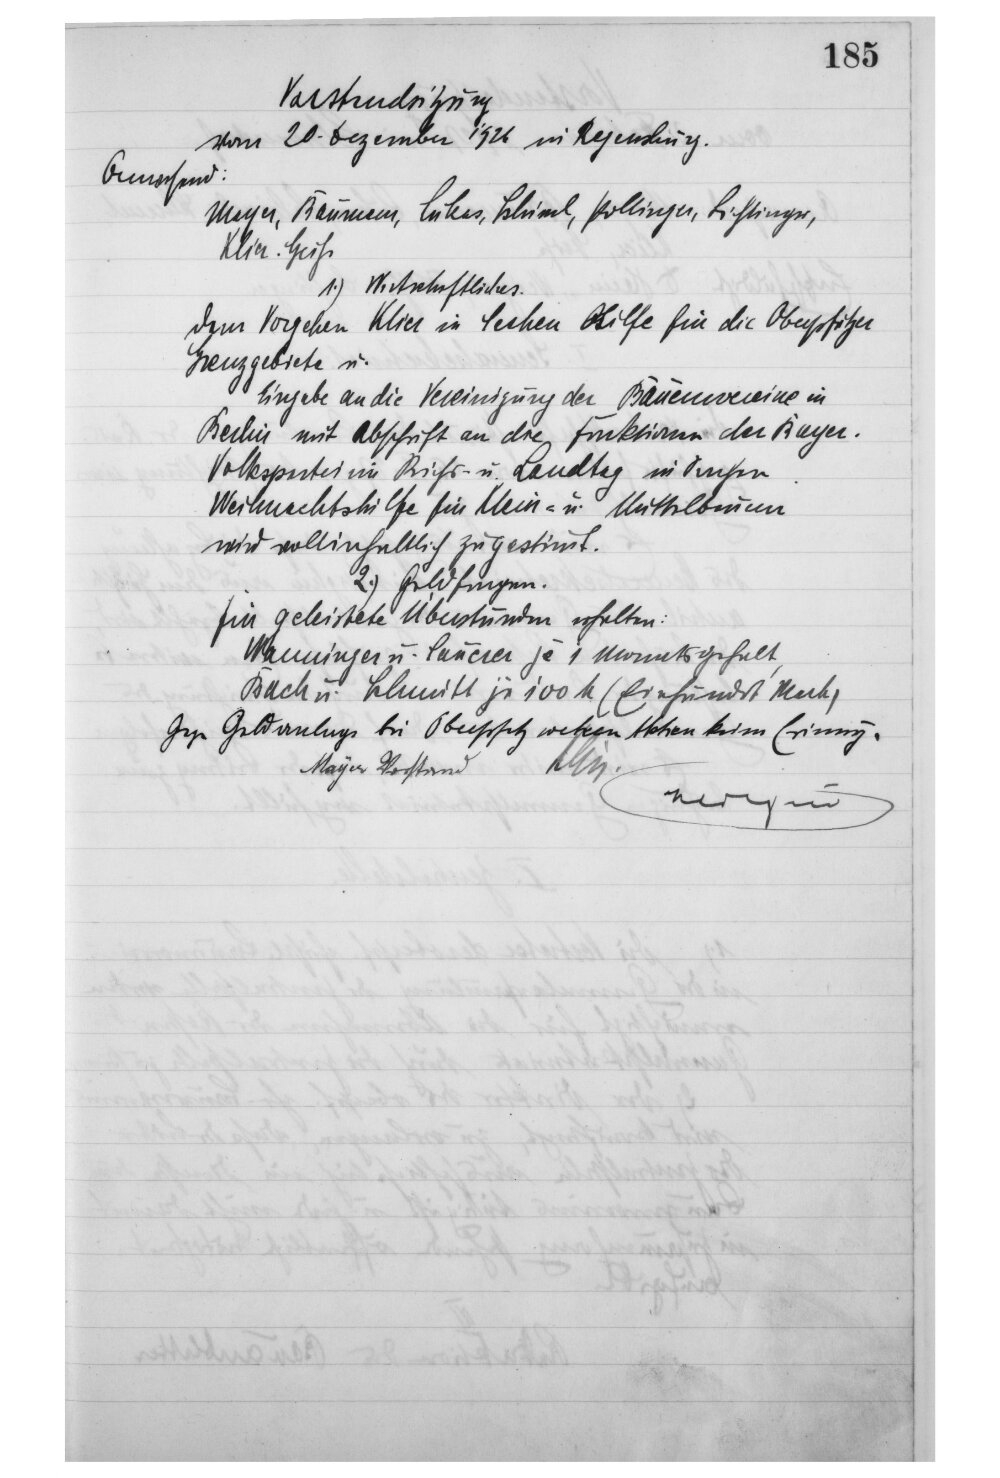 185
Vorstandsitzung
vom 20. Dezember 1926 in Regensburg.
Anwesend:
Mayer, Bäumann, Lukas, Schiml, Pollinger, Lichtinger,
Klier.
1.) Wirtschaftliches.
Dem Vorgehen Klier in Sachen Hilfe für die Oberpfälzer
Grenzgebiete u.
Eingabe an die Vereinigung der Bauernvereine in
Berlin mit Abschrift an die Fraktionen der Bayer.
Volkspartei im Reichs- u. Landtag in Sachen
Weihnachtshilfe für Klein- u. Mittelbauern
wird vollinhaltlich zugestimt.
2.) Geldfragen.
Für geleistete Überstunden erhalten:
Wanninger u. Lauerer je 1 Monatsgehalt,
Bach u. Schmitt je 100 M (Einhundert Mark)
Gegen Geldanlage bei Oberpfalz keine
Mayer Vorstand Klier.